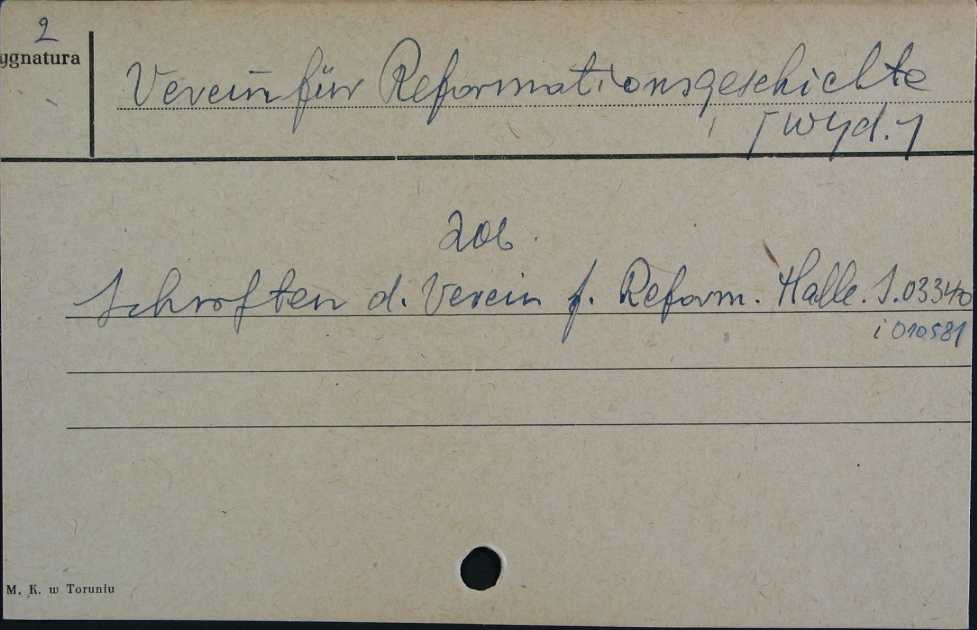 2
ygnatura
Verein für Reformationsgeschichte
[wyd.]
zob.
Schriften d. Verein f. Reform. Halle. S.03340
i 010581
M. K. w Toruniu